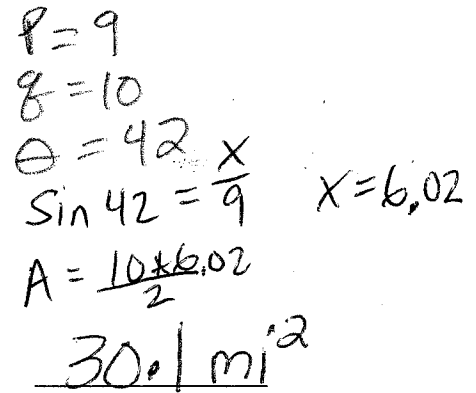 P = 9
q = 10
θ = 42
Sin 42 = x/9 x = 6.02
A = 10*6.02/2
30.1 mi²